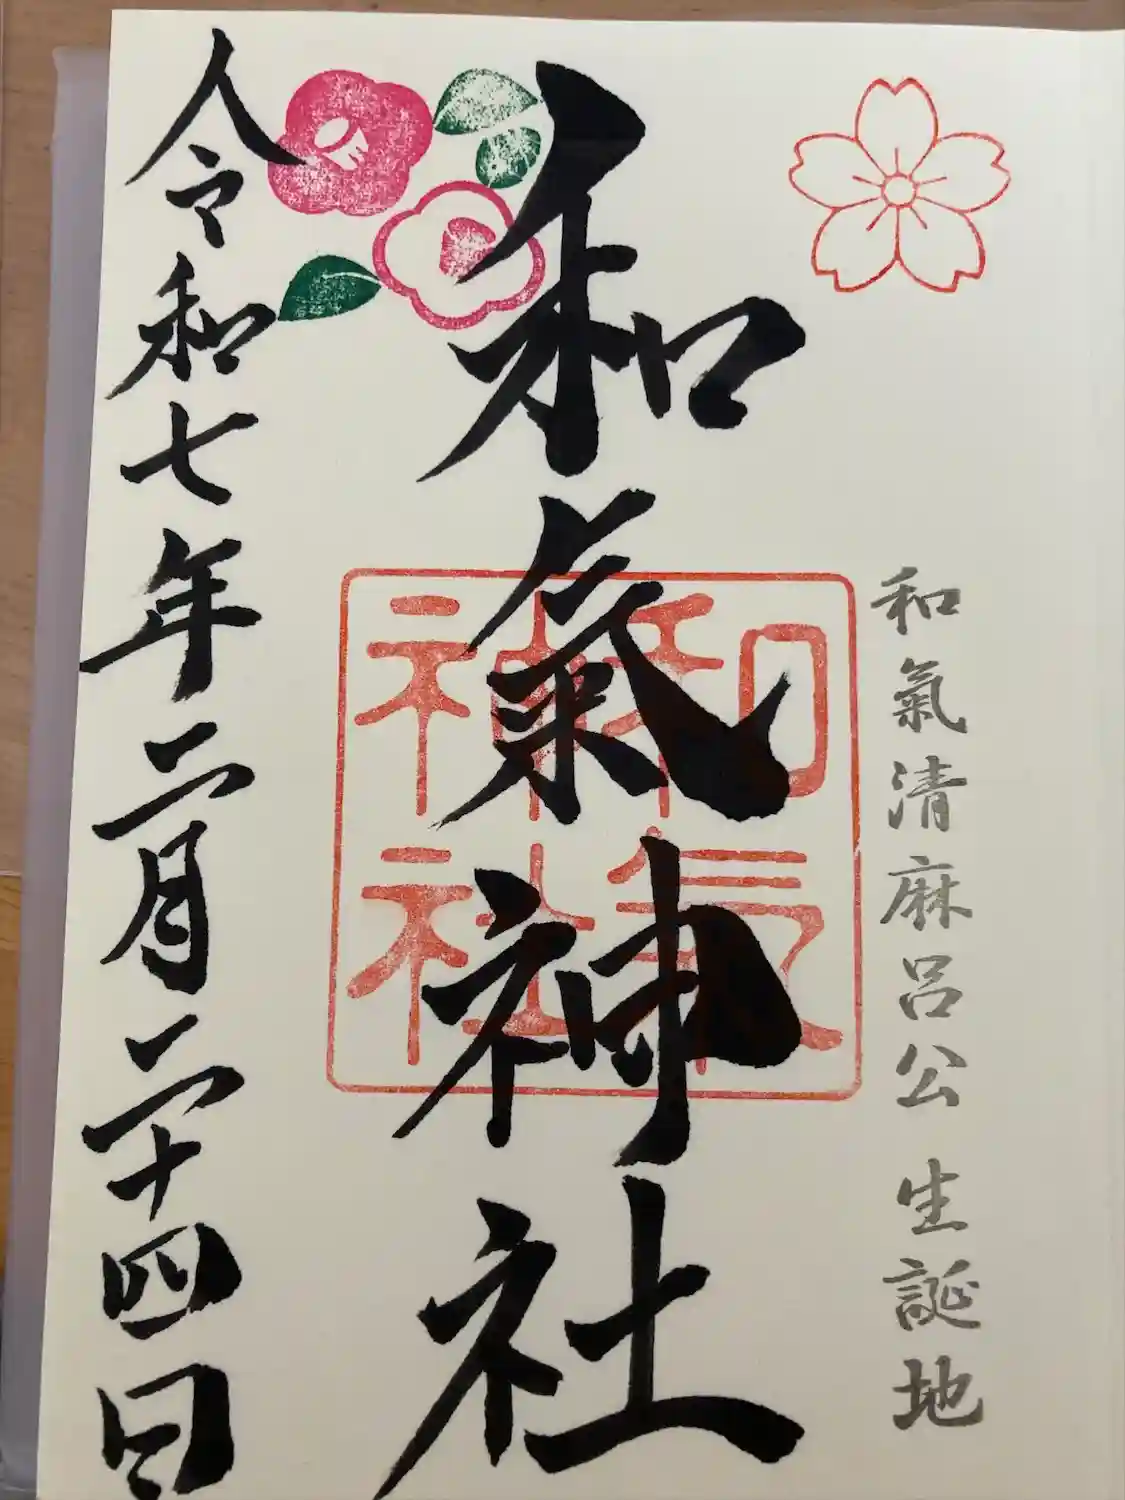 和氣清麻呂公 生誕地
和氣神社
和氣
神社
令和七年二月二十四日